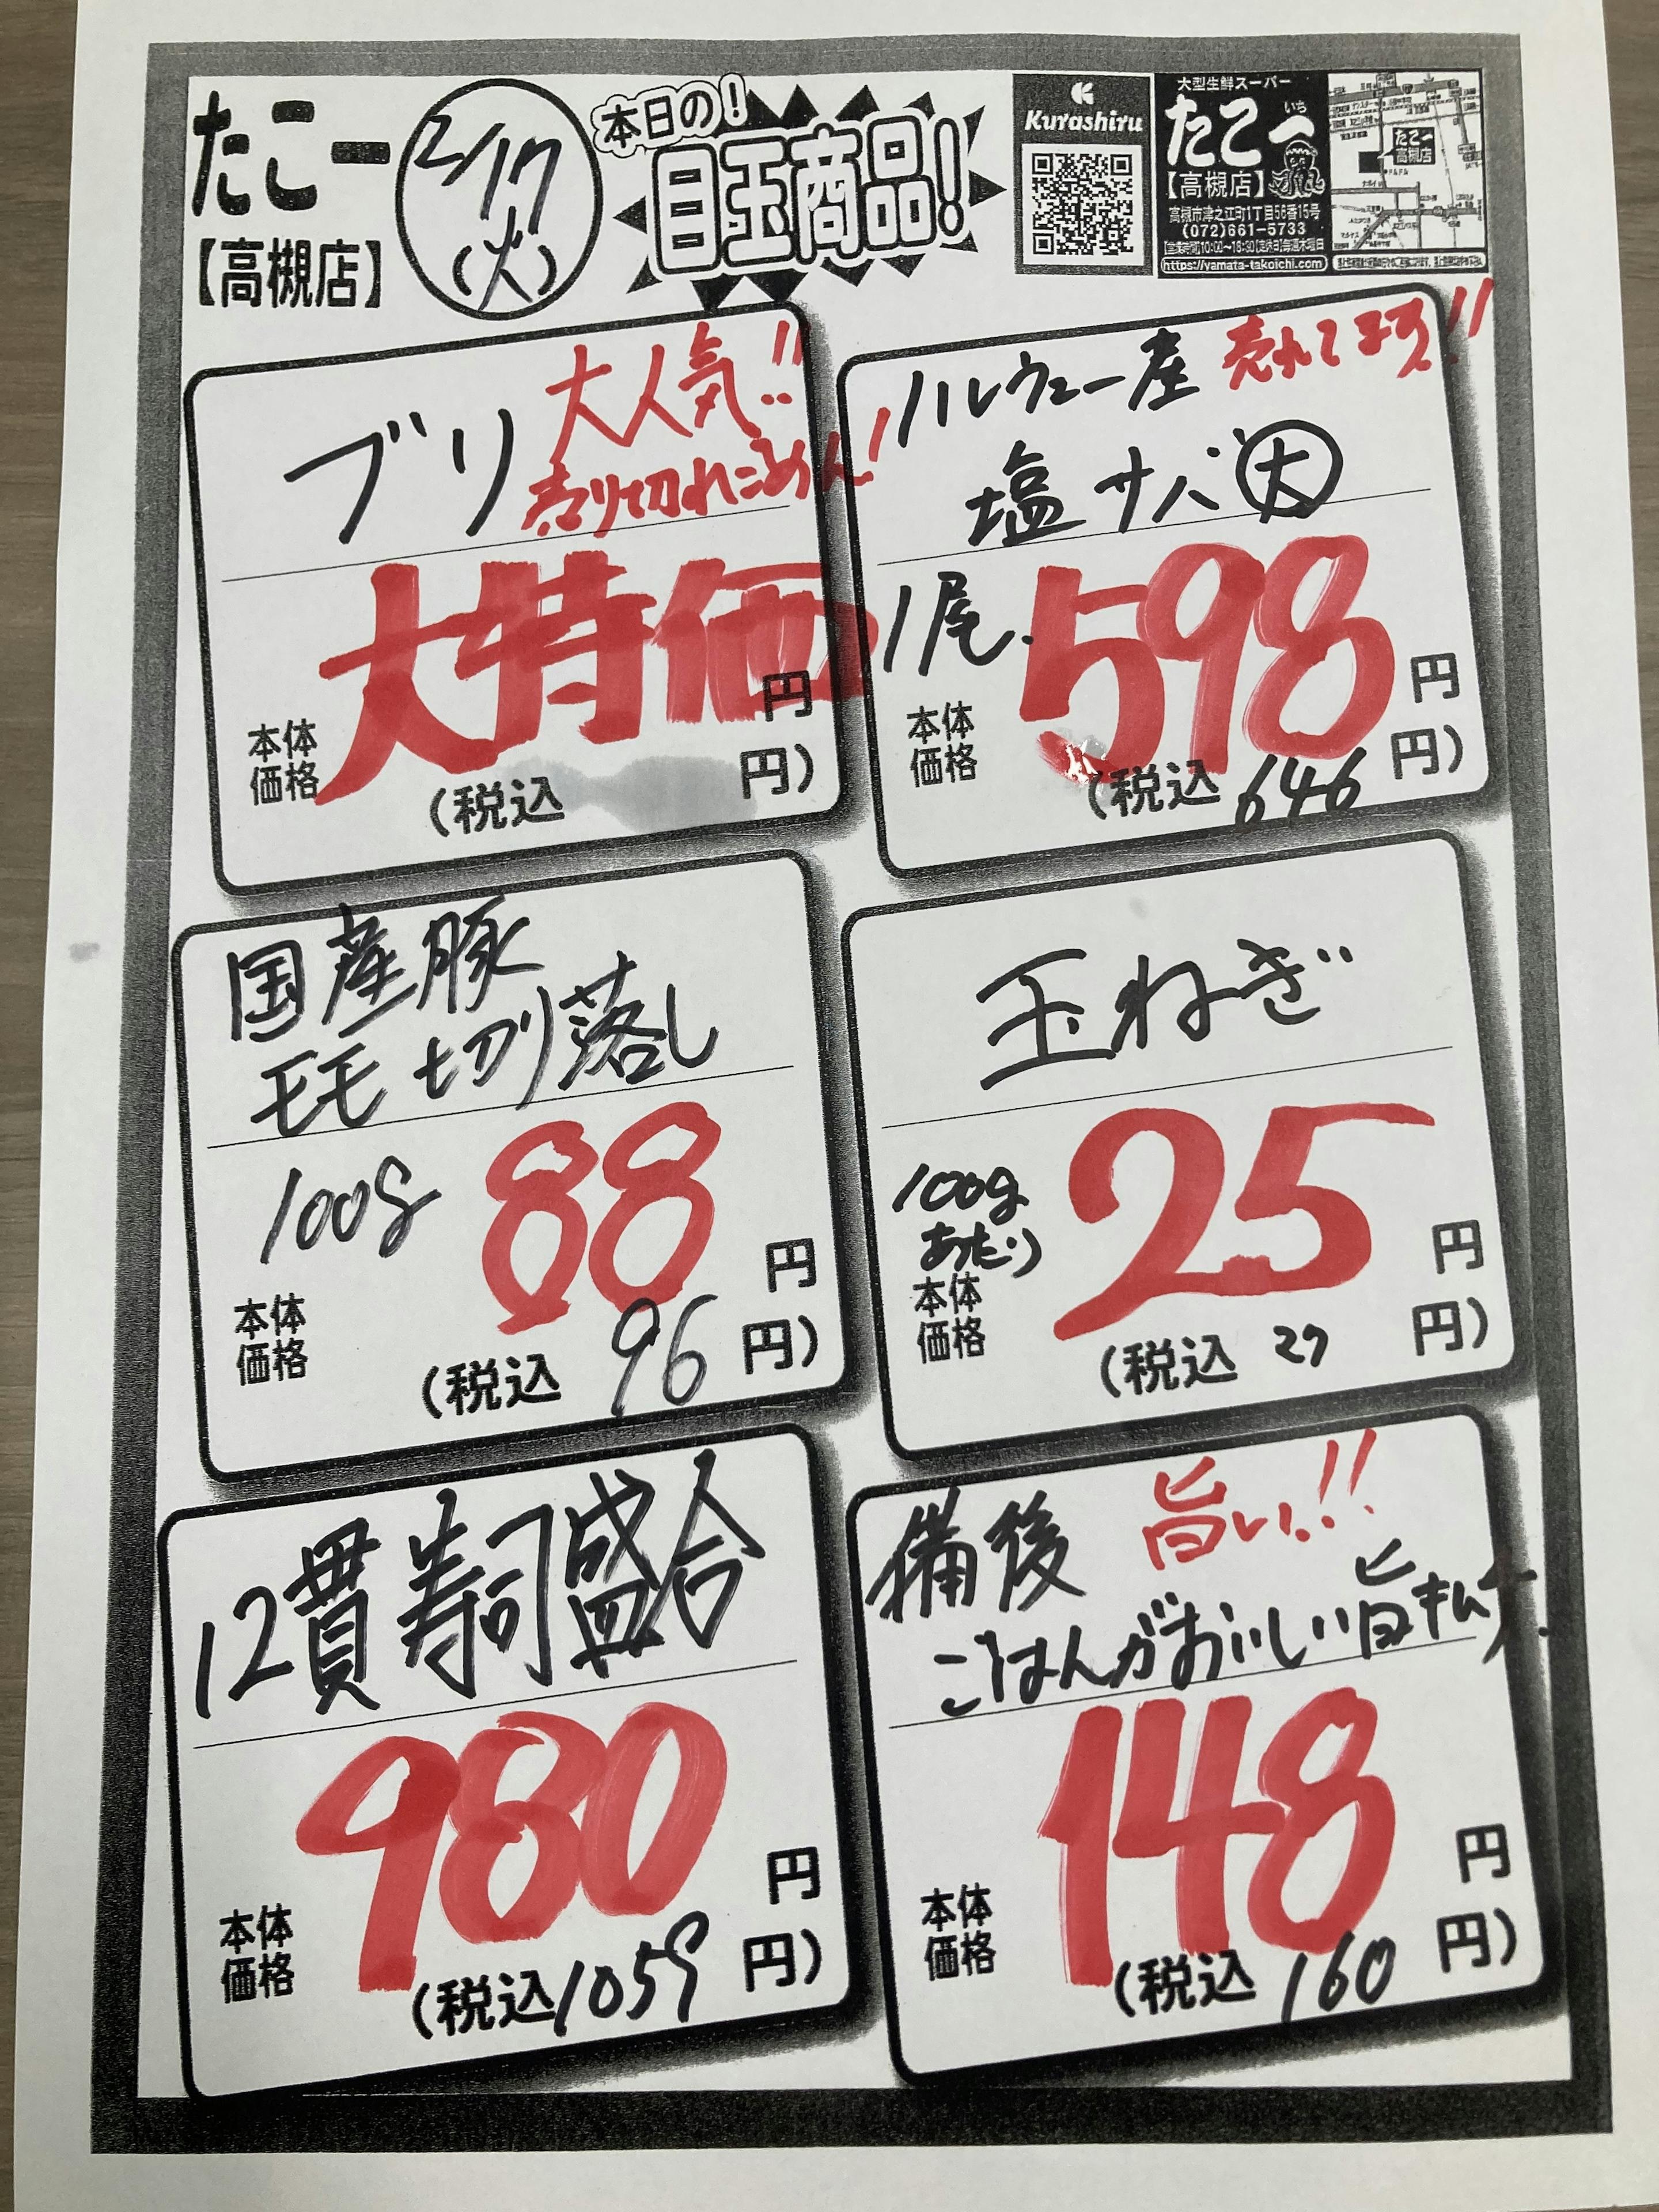 たこ一
【高槻店】
2/17
(火)
本日の!
目玉商品!
Kurashiru
大型生鮮スーパー
たこ一
いち
【高槻店】
高槻市津之江町1丁目58番15号
(072)661-5733
https://yamata-takoichi.com
たこ一
高槻店
ブリ
大人気!!
売り切れごめん!
大特価
円
本体
価格
(税込 円)
ノルウェー産
売れてます!!
塩サバ 大
1尾
598
円
本体
価格
(税込 646 円)
国産豚
モモ切り落し
100g
88
円
本体
価格
(税込 96 円)
玉ねぎ
100g
あたり
25
円
本体
価格
(税込 27 円)
12貫寿司盛合
980
円
本体
価格
(税込 1059 円)
備後
旨い!!
ごはんがおいしい旨キムチ
148
円
本体
価格
(税込 160 円)